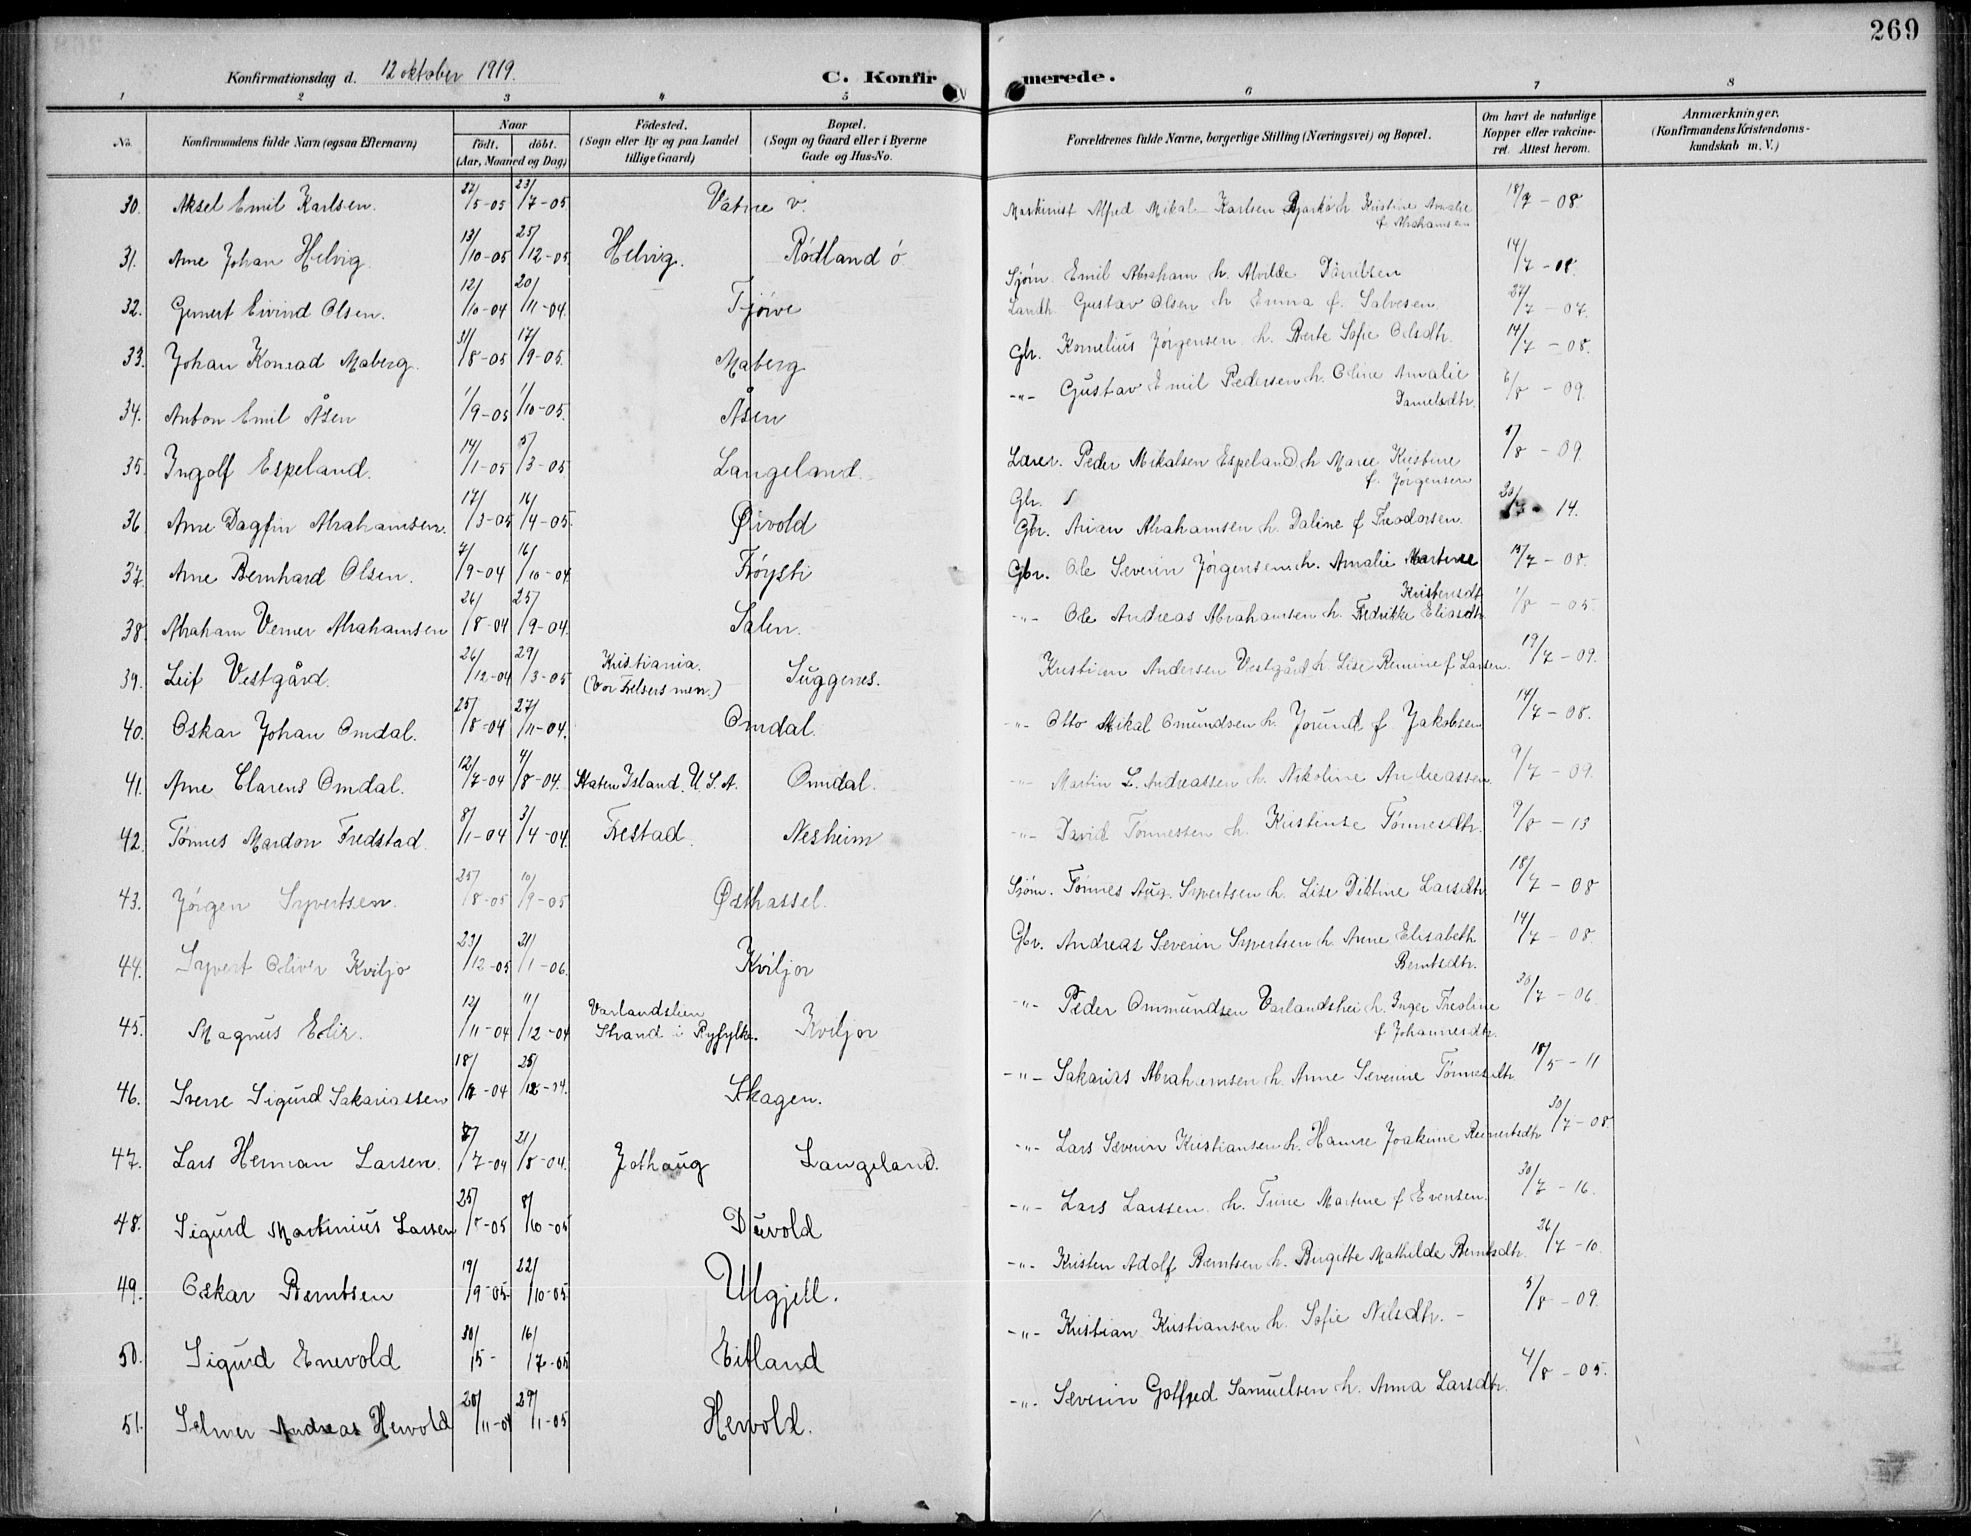 269
Konfirmationsdag d. 12 oktober 1919.
C. Konfirmerede.
1 2 3 4 5 6 7 8
No.
Konfirmandens fulde Navn (ogsaa Efternavn)
Naar
født. døbt.
(Aar, Maaned og Dag)
Fødested.
(Sogn eller By og paa Landet
tillige Gaard)
Bopæl.
(Sogn og Gaard eller i Byerne
Gade og Hus-No.
Forældrenes fulde Navne, borgerlige Stilling (Næringsvei) og Bopæl.
Om havt de naturlige
Kopper eller vakcine-
ret. Attest herom.
Anmærkninger.
(Konfirmandens Kristendoms-
kundskab m. V.)
30. Aksel Emil Karlsen. 27/5-05 23/7-05 Vatne v. Maskinist Alfred Mikal Karlsen h. Kristine Amalie
f Abrahamsen 18/7-08.
31. Arne Johan Helvig. 13/10-05 25/12-05. Helvig. Rødland ø Sjøm. Emil Abraham h. Alvilde Danielsen 14/7-08.
32. Gunert Eivind Olsen. 12/10-04 20/11-04. Tjørve Landh. Gustav Olsen h Emma f. Salvesen 27/7-07.
33. Johan Konrad Maberg. 31/8-05 17/9-05. Maberg Gbr. Kornelius Jørgensen h. Berte Sofie Olsdtr. 14/7-08.
34. Anton Emil Åsen 1/9-05 1/10-05. Åsen -"- Gustav Emil Pedersen h. Oline Amalie
Danielsdtr. 6/8-09.
35. Ingolf Espeland. 14/1-05 5/3-05. Langeland. Lærer. Peder Mikalsen Espeland h Marie Kristine
f. Jørgensen 5/8-09
Gbr.
36 Arne Dagfin Abrahamsen. 17/3-05 16/4-05. Øivold Gbr. Arian Abrahamsen h. Daline f Theodorsen. 14.
37. Arne Bernhard Olsen. 7/9-04 16/10-04 Frøysti Gbr. Ole Severin Jørgensen h. Amalie Martine
Kristensdt. 15/7-08.
38. Abraham Verner Abrahamsen 26/8-04 25/9-04. Salen. -"- Ole Andreas Abrahamsen h. Fredrikke Eliasdtr. 1/8-05.
39. Leif Vestgård. 26/12-04 29/3-05 Kristiania.
(Vor Frelsers men.) Suggenes. Kristian Andersen Vestgård h. Lise Remine f Larsen. 19/7-09.
40. Oskar Johan Omdal. 25/8-04 27/11-04. Omdal. -"- Otto Mikal Omundsen h. Jorund f Jakobsen 14/7-08.
41. Arne Clarens Omdal. 12/7-04 4/8-04. Staten Island. U.S.A. Omdal. -"- Martin L. Andreassen h. Nikoline Andreassen. 9/7-09.
42. Tønnes Mardon Fredstad. 8/1-04 3/4-04. Frestad. Nesheim -"- David Tønnessen h. Kristense Tønnesdtr. 9/8-13
43. Jørgen Syvertsen. 25/8-05 10/9-05 Østhassel. Sjøm. Tønnes Aug. Syvertsen h. Lise Diktine Larsdtr. 18/7-08
44. Syvert Oliver Kviljo 23/12-05 21/1-06. Kviljor Gbr. Andreas Severin Syvertsen h. Anne Elisabeth
Berntsdtr. 14/7-08.
45. Magnus Elir. 12/11-04 11/12-04 Varlandslien
Strand i Ryfylke. Kviljor -"- Peder Ommundsen Varlandshei h. Inger Theoline
f Johannesdtr. 20/7-06.
46. Sverre Sigurd Sakariassen 18/11-04 25/12-04. Skagen. -"- Sakarias Abrahamsen h. Anne Severine Tønnesdtr. 18/5-11
47. Lars Herman Larsen. 7/7-04 21/8-04. Jothaug Langeland. -"- Lars Severin Kristiansen h. Hanne Joakime Reinertsdtr 30/7-08
48. Sigurd Martinius Larsen 25/8-05 8/10-05 Duvold -"- Lars Larssen. h. Trine Martine f Evensen. 30/7-16.
49. Oskar Berntsen 19/9-05. 22/10-05. Ulgjell. -"- Kristen Adolf Berntsen h. Birgitte Mathilde Berntsdtr. 26/7-10.
50. Sigurd Enevold 30/5- 16/7-05 Eitland -"- Kristian Kristiansen h. Sofie Nilsdtr. - 5/8-09.
51. Selmer Andreas Hervold 20/11-04 29/1-05 Hervold. -"- Severin Gotfred Samuelsen h. Anna Larsdtr. 4/8-05.